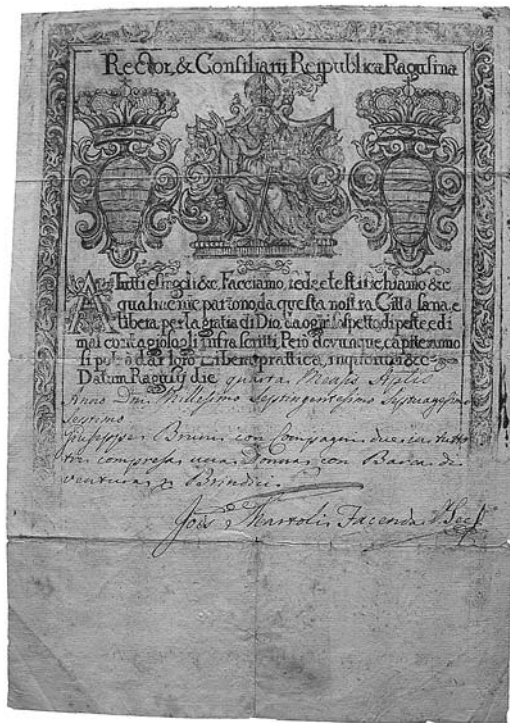 Rector, & Consiliarii Reipublicæ Ragusinæ
A Tutti e singoli &c. Facciamo fede, e testifichiamo &c
qualmente partono da questa nostra Città sana, e
libera, per la gratia di Dio, da ogni sospetto di peste, e di
mal contagioso gli infra scritti. Però dovunque capiteranno
si potrà dar loro Libera prattica, in quorum &c
Datum Ragusij die quarta Mensis Aprilis
Anno Dni Millesimo Septingentesimo Septuagesimo
Septimo
Giuseppe Bruni con Compagni due in tutto
tre compresa una Donna con Barca di
ventura Brindisi.
Facenda Sec